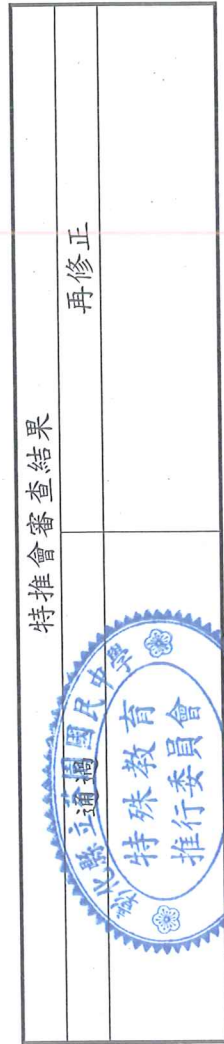 特推會審查結果
通過
再修正
彰化縣立
國民中學
特殊教育
推行委員會